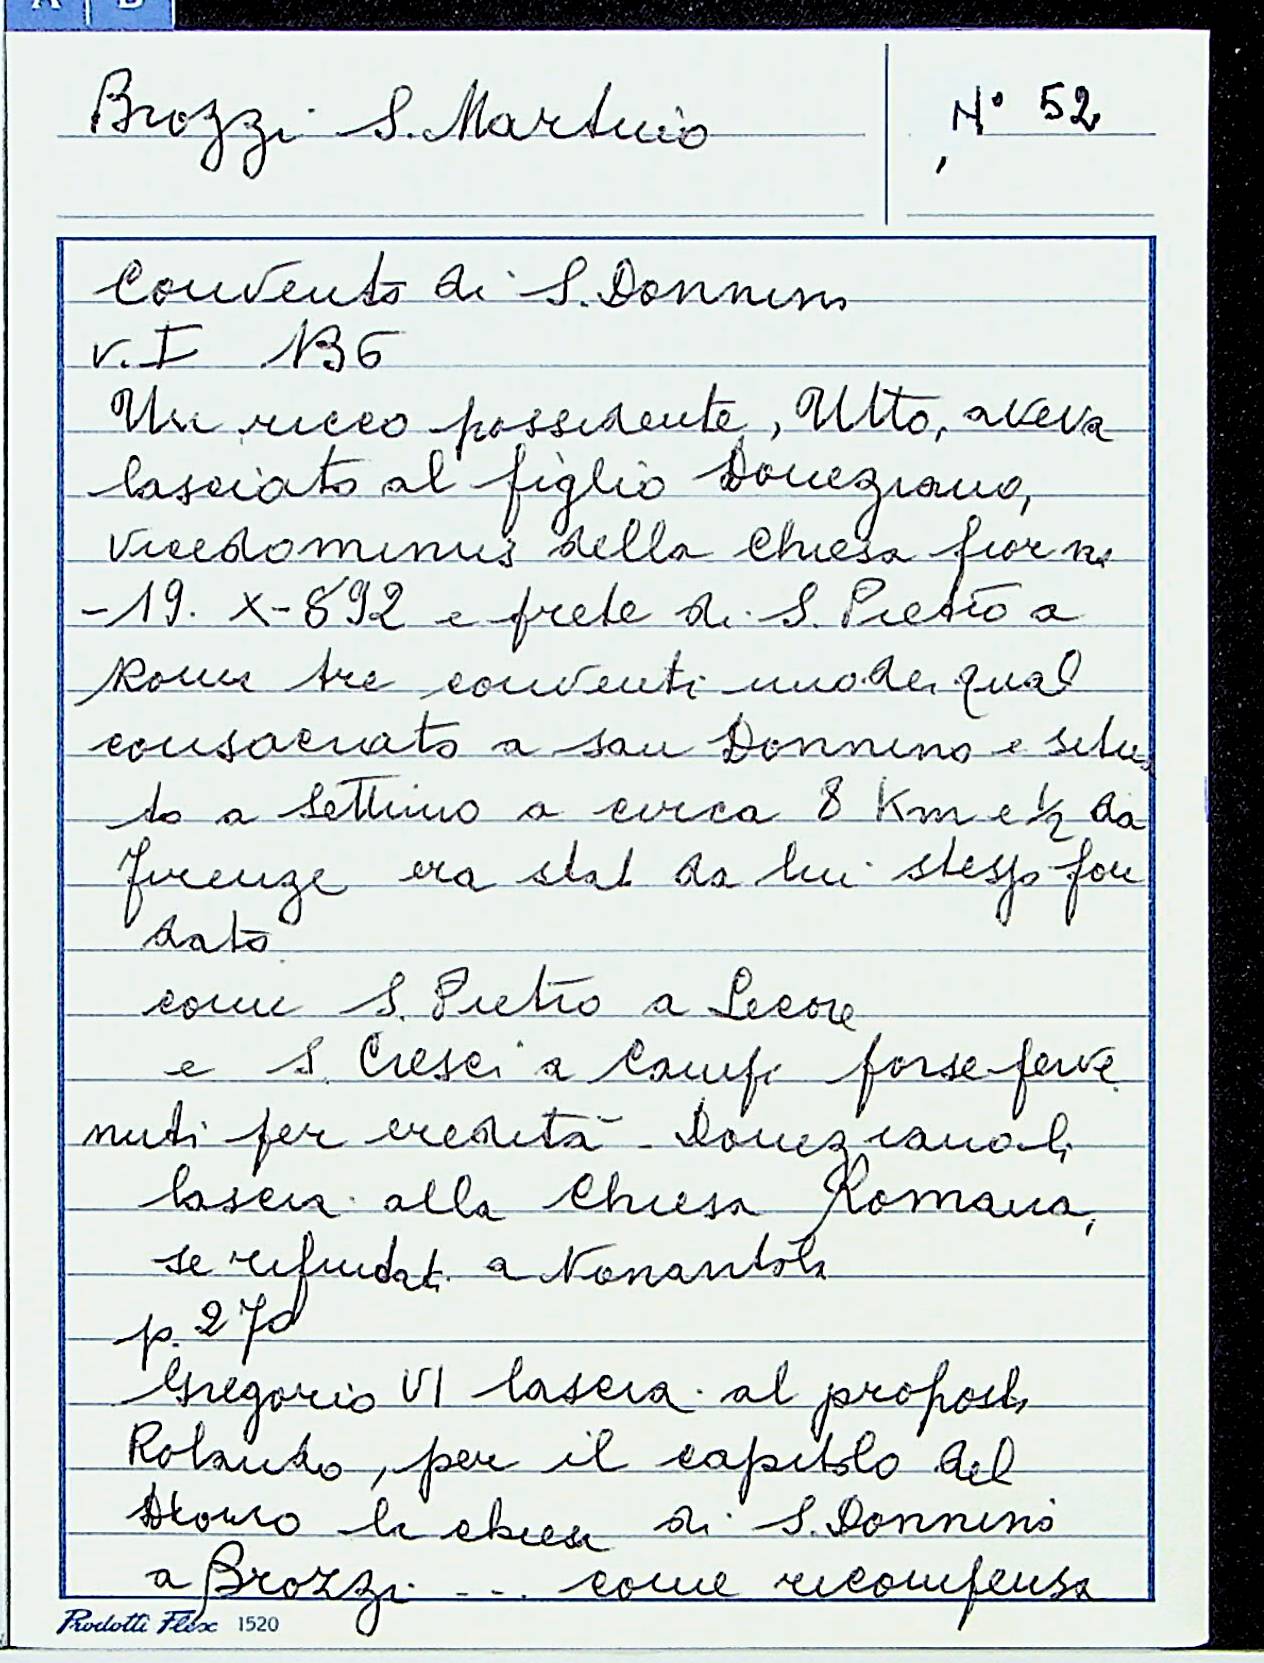 A B
Brozzi S. Martino
N° 52
Convento di S. Donnino
v. I 136
Un ricco possidente, Utto, aveva
lasciato al figlio Doneziano,
vicedominus della Chiesa fiorn.
-19. X-892 e prete di S. Pietro a
Roma tre conventi uno dei qual
consacrato a san Donnino e situa
to a Settimo a circa 8 Km e ½ da
Firenze era stat da lui stesso fon
dato
come S. Pietro a Lecore
e S. Cresci a Campi forse perve
nuti per eredità - Doneziano li
lascia alla Chiesa Romana,
se rifiutati a Nonantola
p. 270
Gregorio VI lascia al proposto
Rolando, per il capitolo del
Duomo la chiesa di S. Donnino
a Brozzi ... come ricompensa
Prodotti Flex 1520